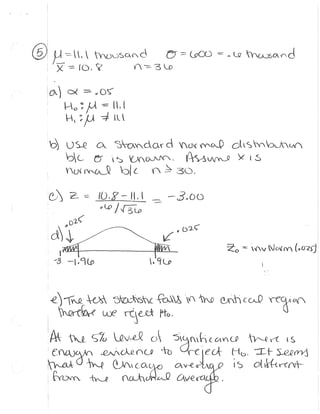 ⑤ μ = 11.1 thousand σ = 600 = .6 thousand
x̄ = 10.8 n = 36
a) α = .05
H₀: μ = 11.1
H₁: μ ≠ 11.1
b) use a standard normal distribution
b/c σ is known. Assume x is
normal b/c n ≥ 30.
c) z = (10.8 - 11.1) / (.6/√36) = -3.00
d) .025 .025
-3 -1.96 1.96
z₀ = invNorm(.025)
e) The test statistic falls in the critical region
therefore we reject H₀.
At the 5% level of significance there is
enough evidence to reject H₀. It seems
that the Chicago average is different
from the national average.